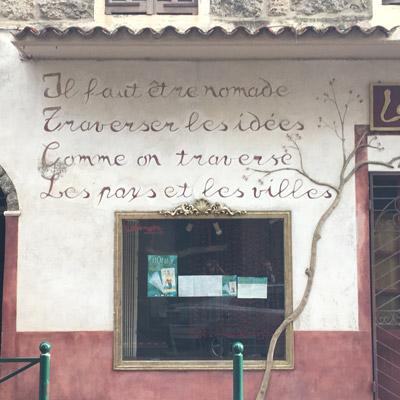 Il faut être nomade
Traverser les idées
Comme on traverse
Les pays et les villes